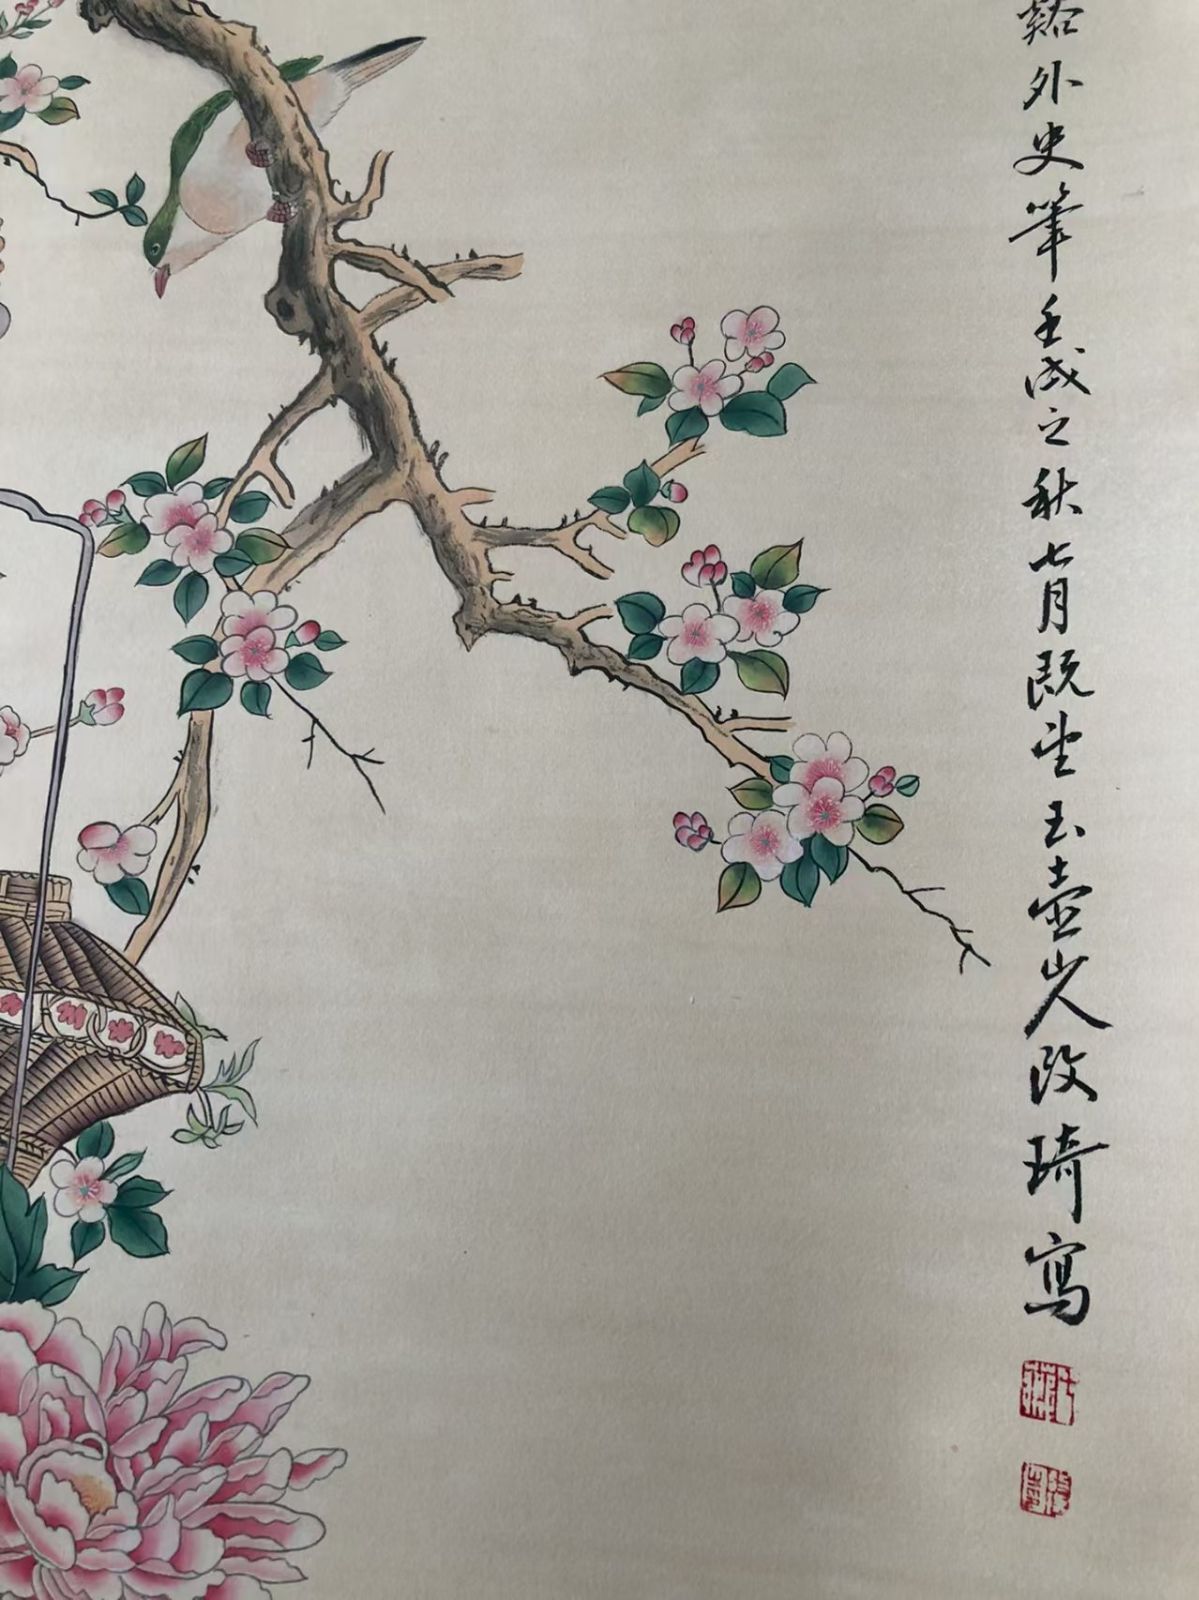 谿外史筆壬戌之秋七月既望玉壺山人改琦寫